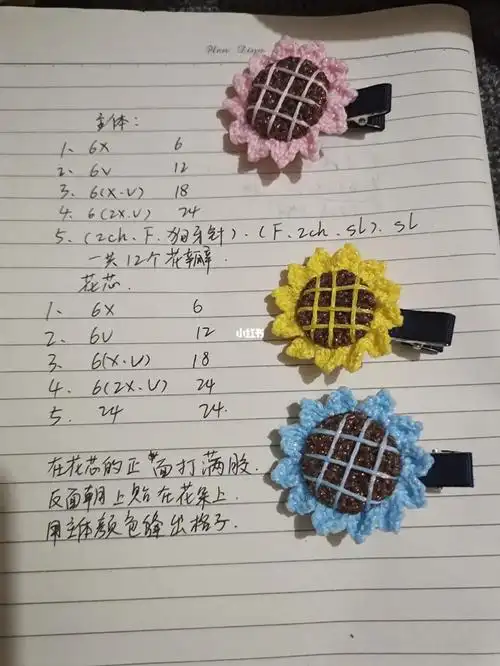 主体:
1、 6X 6
2、 6V 12
3、 6(X.V) 18
4、 6(2X.V) 24
5、(2ch.F.狗牙针).(F.2ch.sl).sl
一共12个花瓣
花芯.
1、 6X 6
2、 6V 12
3、 6(X.V) 18
4、 6(2X.V) 24
5、 24 24.
小红书
在花芯的正面打满胶.
反面朝上贴在花朵上.
用主体颜色缝出格子.